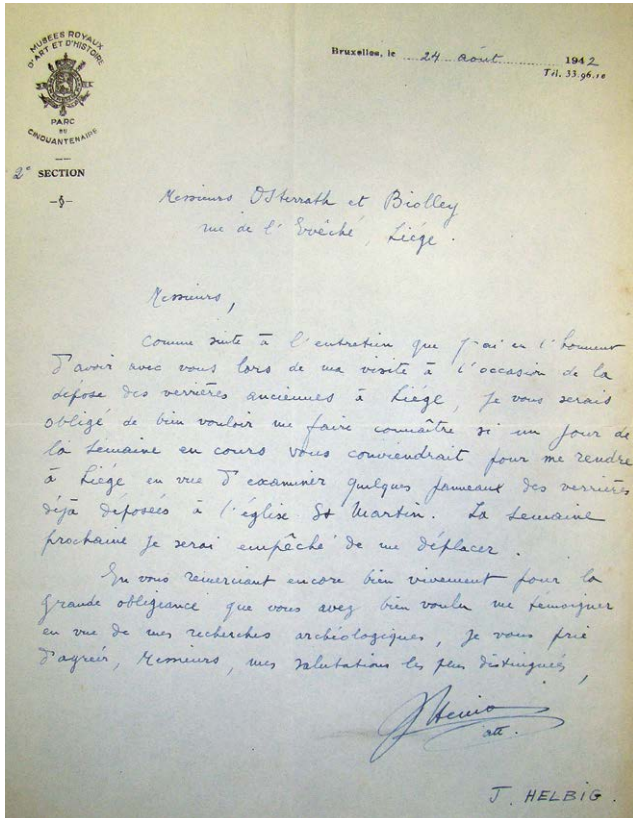 MUSÉES ROYAUX
D'ART ET D'HISTOIRE
PARC
DU
CINQUANTENAIRE
2e SECTION
Bruxelles, le 24 août 1942
Tél. 33.96.10
Messieurs Osterrath et Biolley
rue de l'Evêché, Liége.
Messieurs,
Comme suite à l'entretien que j'ai eu l'honneur
d'avoir avec vous lors de ma visite à l'occasion de la
dépose des verrières anciennes à Liége, je vous serais
obligé de bien vouloir me faire connaître si un jour de
la semaine en cours vous conviendrait pour me rendre
à Liége en vue d'examiner quelques panneaux des verrières
déjà déposées à l'église St Martin. La semaine
prochaine je serai empêché de me déplacer.
En vous remerciant encore bien vivement pour la
grande obligeance que vous avez bien voulu me témoigner
en vue de mes recherches archéologiques, je vous prie
d'agréer, Messieurs, mes salutations les plus distinguées,
att.
J. HELBIG.